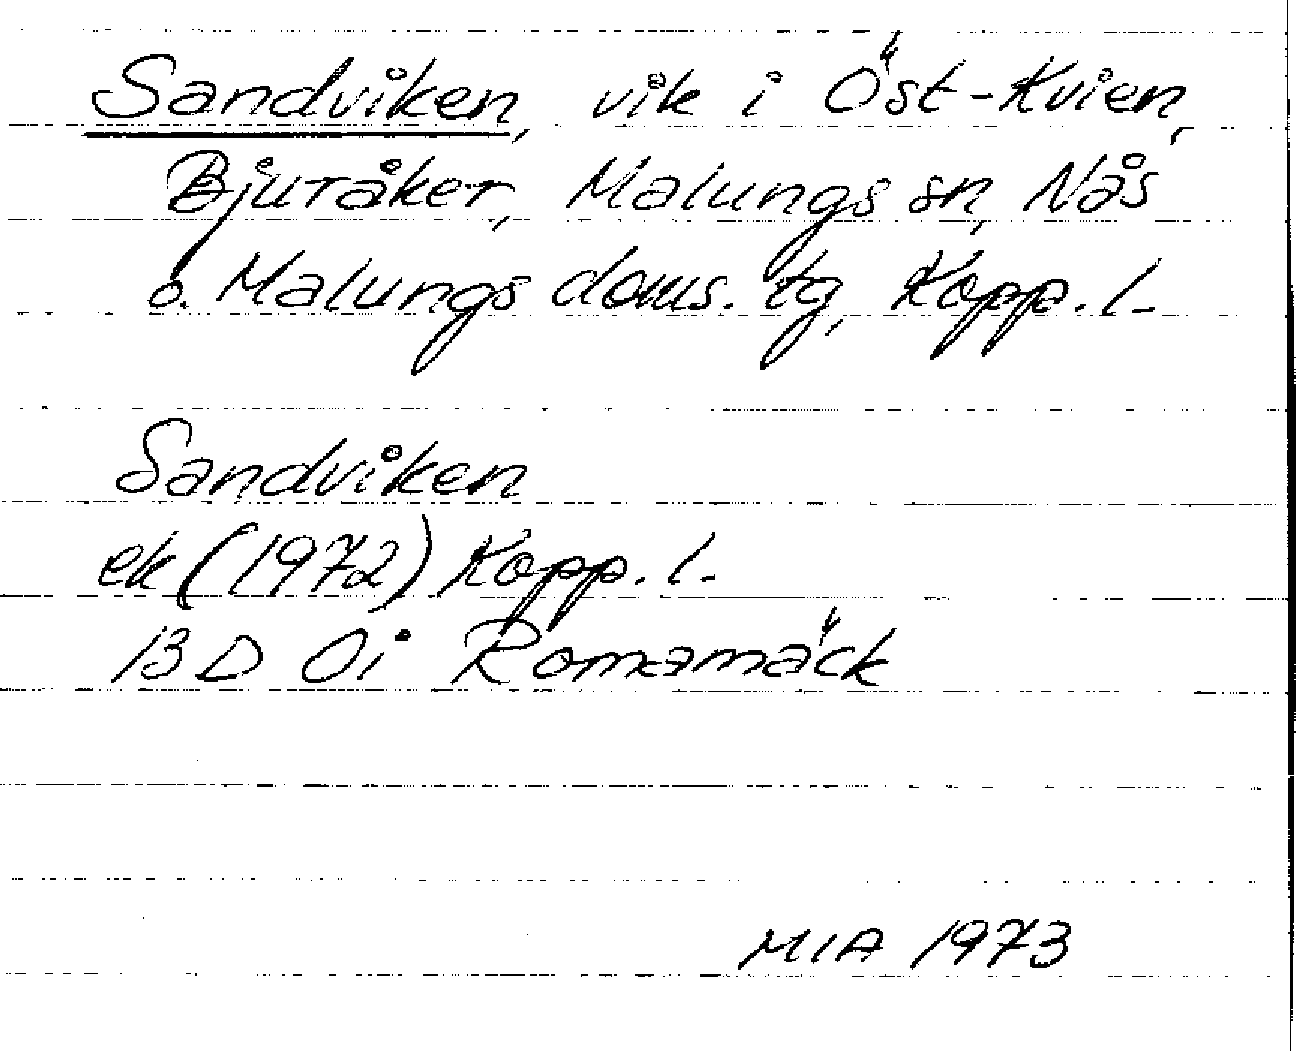 Sandviken, vik i Öst-Kvien,
Bjuråker, Malungs sn, Nås
o. Malungs doms. tg, Kopp. l.
Sandviken
ek (1972) Kopp. l.
13 D 0i Romamäck
MIA 1973